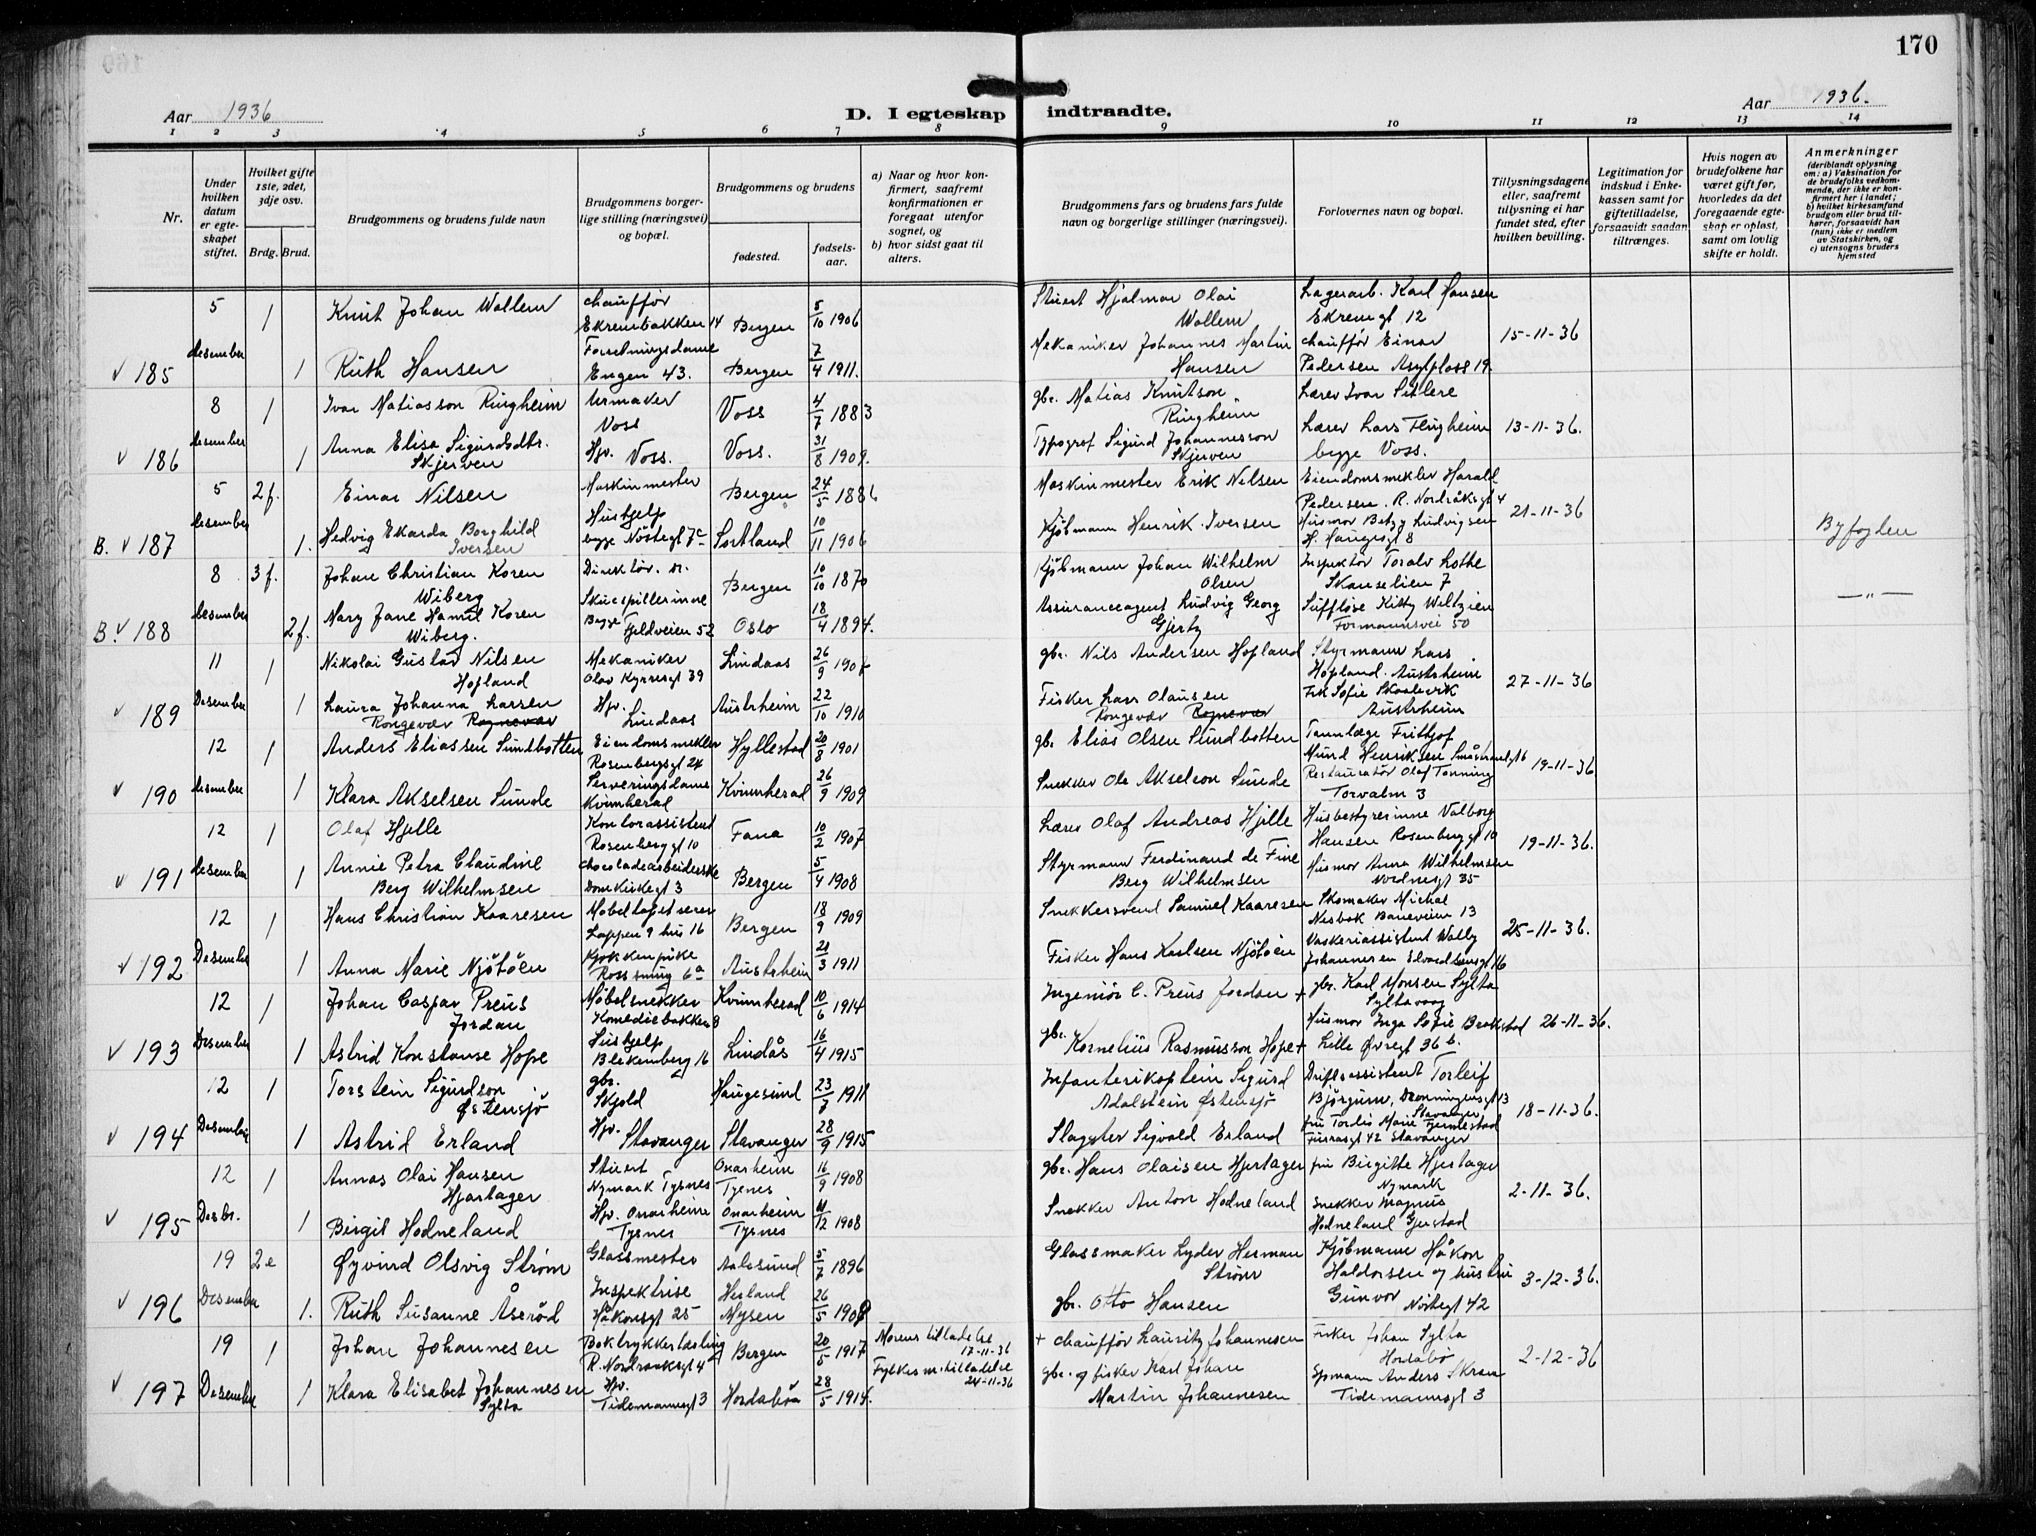 170
Aar 1936
D. I egteskap indtraadte.
Aar 1936.
1 2 3 4 5 6 7 8 9 10 11 12 13 14
Nr.
Under hvilken datum er egteskapet stiftet.
Hvilket gifte 1ste, 2det, 3dje osv.
Brdg. Brud.
Brudgommens og brudens fulde navn
Brudgommens borgerlige stilling (næringsvei) og bopæl.
Brudgommens og brudens
fødested.
fødselsaar.
a) Naar og hvor konfirmert, saafremt konfirmationen er foregaat utenfor sognet, og
b) hvor sidst gaat til alters.
Brudgommens fars og brudens fars fulde navn og borgerlige stillinger (næringsvei).
Forlovernes navn og bopæl.
Tillysningsdagene eller, saafremt tillysning ei har fundet sted, efter hvilken bevilling.
Legitimation for indskud i Enkekassen samt for giftetilladelse, forsaavidt saadan tiltrænges.
Hvis nogen av brudefolkene har været gift før, hvorledes da det foregaaende egteskap er opløst, samt om lovlig skifte er holdt.
Anmerkninger
(deriblandt oplysning om: a) Vaksination for de brudefolks vedkommende, der ikke er konfirmert her i landet;
b) hvilket kirkesamfund brudgom eller brud tilhører, forsaavidt han (hun) ikke er medlem av Statskirken, og
c) utensogns bruders hjemsted
v 185 5 desember
1 Knut Johan Wollem chauffør Ekrembakken 14 Bergen 5/10 1906 Stuert Hjalmar Olai Wollem Lagerarb. Karl Hansen Ekremgt 12
1 Ruth Hansen Forretningsdame Engen 43. Bergen 7/4 1911. Mekaniker Johannes Martin Hansen chauffør Einar Pedersen Asylplass 19. 15-11-36
v 186 8 desember
1 Ivar Matiasson Ringheim Urmaker Voss Voss 4/7 1883 gbr. Matias Knutson Ringheim Lærer Ivar
1 Anna Elisa Sigurdsdtr. Skjerven Hjv. Voss. Voss. 31/8 1909. Typograf Sigurd Johannesson Skjerven Lærer Lars begge Voss. 13-11-36.
B. v 187 5 desember
2 f. Einar Nilsen Maskinmester Bergen 24/5 1886 Maskinmester Erik Nilsen Eiendomsmekler Harald Pedersen. R. Nordråksgt 4
1. Hedvig Ekarda Borghild Iversen Hushjelp begge Nöstegt 7c Sortland 10/11 1906 Kjøbmann Henrik Iversen Husmor Betzy Ludvigsen H. Haugesgt 8 21-11-36 Byfogden
B. v 188 8 desember
3 f. Johan Christian Koren Wiberg Direktør. Bergen 10/10 1870 Kjøbmann Johan Wilhelm Olsen Inspektør Toralv Lothe Skanselien 7
2 f. Mary Jane Hamil Koren Wiberg. Skuespillerinne Begge Fjeldveien 52 Oslo 18/4 1894. Assuranceagent Ludvig Georg Gjertz Sufflöse Kitty Weltzien Formannsvei 50 — „ —
v 189 11 Desember
1 Nikolai Gustav Nilsen Hopland Mekaniker Olav Kyrresgt 39 Lindaas 26/9 1907 gbr. Nils Andersen Hopland Styrmann Lars Hopland. Austrheim
1 Laura Johanna Larsen Rongevær Rognevær Hjv. Lindaas Austrheim 22/10 1910 Fisker Lars Olausen Rongevær Rognevær Frk Sofie Skaalevik Austrheim 27-11-36
v 190 12 desember
1 Anders Eliassen Sundbotten Eiendomsmekler Rosenbergsgt 24 Hyllestad 20/8 1901 gbr Elias Olsen Sundbotten Tannlæge Fritjof Mund Henriksen 16
1 Klara Akselsen Sunde Serveringsdame Kvinnherad Kvinnherad 26/9 1909 Snekker Ole Akselson Sunde Restauratør Olaf Tonning Torvalm 3 19-11-36
v 191 12 desember
1 Olaf Hjelle Kontorassistent Rosenberggt 10 Fana 10/2 1907 Lærer Olaf Andreas Hjelle Husbestyrerinne Valborg Hansen Rosenberggt 10
1 Annie Petra Claudine Berg Wilhelmsen chocoladearbeiderske Domkirkegt 3 Bergen 5/4 1908 Styrmann Ferdinand de Fine Berg Wilhelmsen Husmor Anna Wilhelmsen Nordnesgt 35 19-11-36.
v 192 12 Desember
1 Hans Christian Kaaresen Møbeltapetserer Lappen 9 hus 16 Bergen 18/9 1909 Snekkersvend Samuel Kaaresen Skomaker Michal Nesbøk Baneveien 13
1 Anna Marie Njøtøen Kjøkkenpike 6a Austrheim 21/3 1911 Fisker Hans Karlsen Njøtøen Vaskeriassistent Wally Johannesen Edvardsensgt 16 25-11-36.
v 193 12 Desember
1 Johan Caspar Preus Jordan Møbelsnekker Komediebakken 8 Kvinnherad 10/6 1914 Ingeniør C. Preus Jordan + gbr. Karl Monsen Sylta Syltavaag
1 Astrid Konstanse Hope Hushjelp Blekenberg 16 Lindås 16/4 1915 gbr. Kornelius Rasmusson Hope + Husmor Inga Sofie Brakstad Lille Øvregt 36 b. 26-11-36.
v 194 12 Desember
1 Torstein Sigurdson Østensjø gbr. Skjold Haugesund 23/7 1911 Infanterikaptein Sigurd Adalstein Østensjø Driftsassistent Torleif Bjørgum, Dronningensgt 13 Stavanger
1 Astrid Erland Hjv. Stavanger Stavanger 28/9 1915 Slagter Sigvald Erland fru Tordis Marie Tjemestad Furrasgt 42 Stavanger 18-11-36.
v 195 12 Desbr.
1 Annas Olai Hansen Hjartager Stuert Nymark Tysnes Onarheim Tysnes 16/9 1908 gbr. Hans Olaisen Hjartager fru Birgitte Hjertager Nymark
1 Birgit Hodneland Hjv. Onarheim Tysnes Onarheim Tysnes 11/12 1908 Snekker Anton Hodneland Snekker Magnus Hodneland Gjerstad 2-11-36.
v 196 19 Desember
2 e Øyvind Olsvig Strøm Glassmester Aalesund 5/7 1896 Glassmaker Lyder Herman Strøm Kjøbmann Håkon Haldorsen og hustru
1. Ruth Susanne Åserød Inspektrise Håkonsgt 25 Hærland Mysen 26/5 1908 gbr. Otto Hansen Gunvor Nöstegt 42 3-12-36.
v 197 19 Desember
1 Johan Johannesen Boktrykkerlærling R. Nordraaksgt 4 Bergen 20/5 1917 Morens tilladelse 17-11-36 + chauffør Lauritz Johannesen Fisker Johan Sylta Hordabø
1 Klara Elisabet Johannesen Sylta Hjv. Tidemannsgt 3 Hordabøa 28/5 1914. Fylkesm. tilladelse 24-11-36 gbr. og fisker Karl Johan Martin Johannesen Anders Skram Tidemannsgt 3 2-12-36